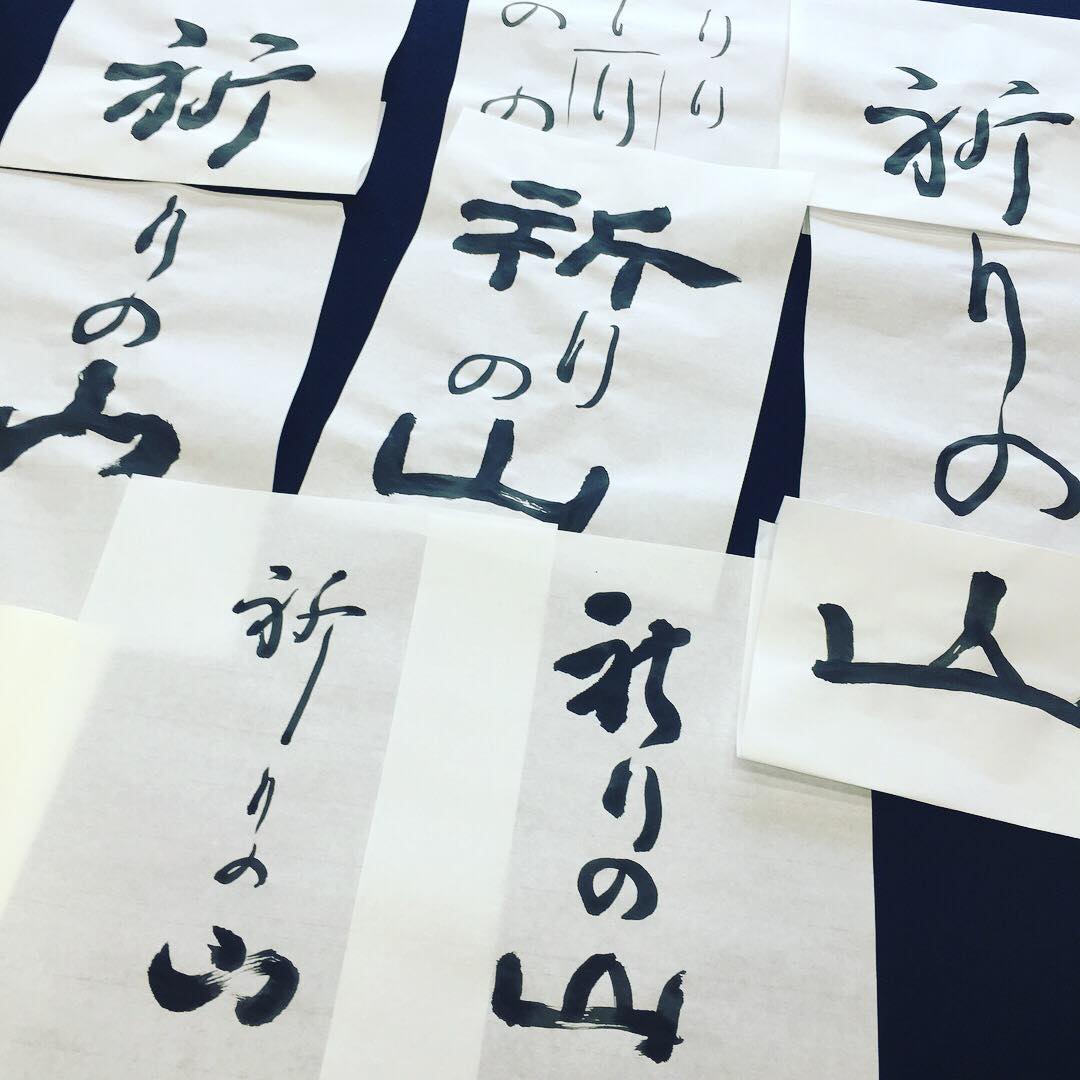 祈りの山
りり
りり
のの
祈りの山
祈りの山
祈りの山
祈りの山